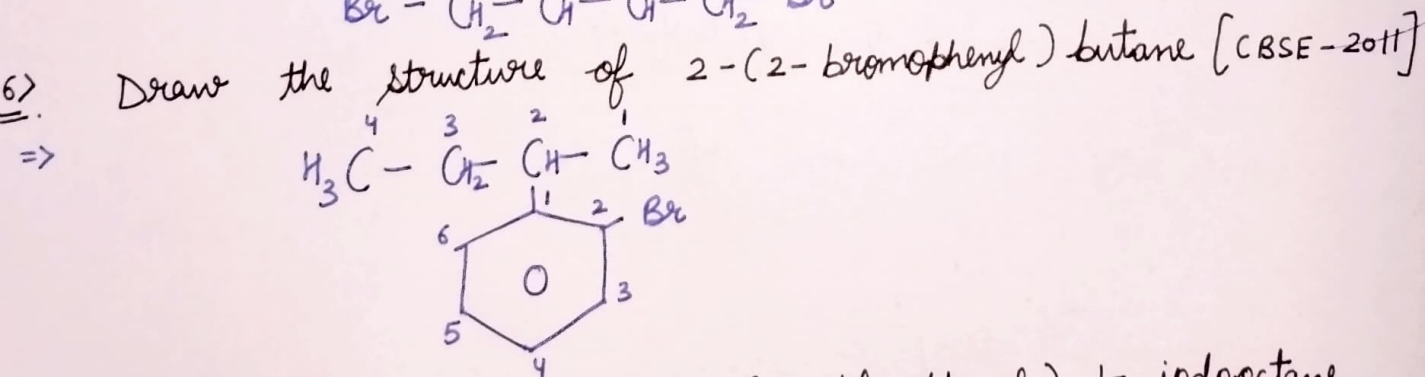 Br - CH2 - CH - CH - CH2
6) Draw the structure of 2-(2-bromophenyl) butane [CBSE-2011]
4 3 2 1
=> H3C - CH2 - CH - CH3
1 2 Br
6
3
5
4